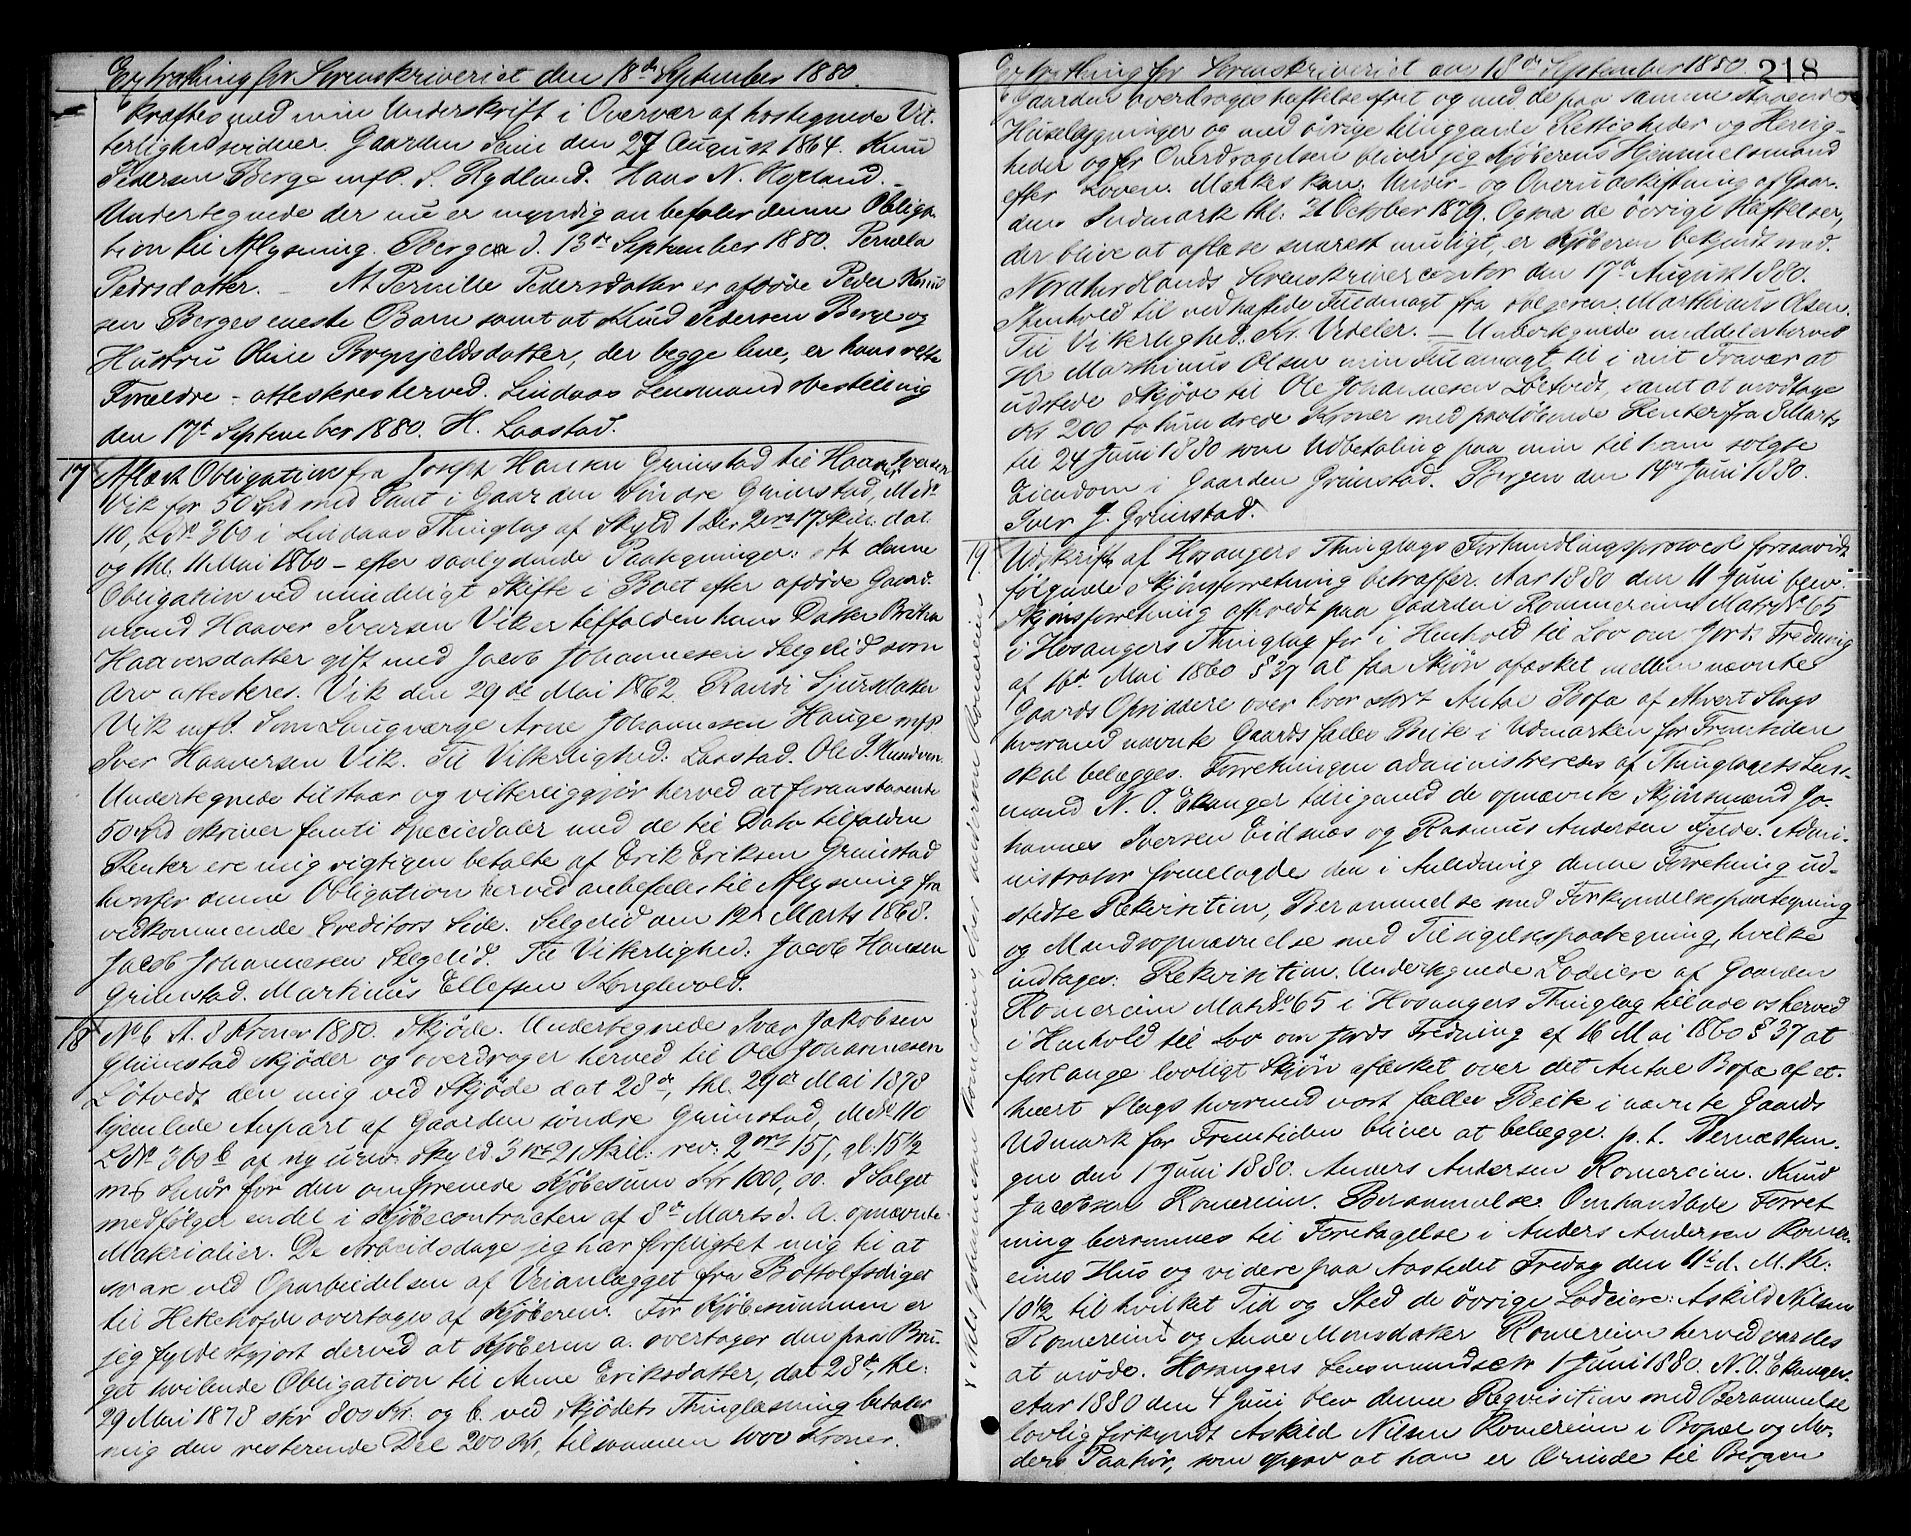 Extrathing for Sorenskriveriet den 18de September 1880.
kræftes med min Underskrift i Overvær af hostegnede Vit-
terlighedsvidner. Gaarden Seim den 27 August 1864. Knud
Pedersen Berge mfP. S. Rydland. Hans N. Hopland. –
Undertegnede der nu er myndig anbefaler denne Obliga-
tion til Aflysning. Bergen d. 13de September 1880. Pernela
Pedersdatter. – At Pernille Pedersdatter er afdøde Peder Knud
sen Berges eneste Barn samt at Knud Pedersen Berge og
Hustru Oline Brynjeldsdatter, der begge leve, er hans rette
Forældre – attesteres herved. Lindaas Lensmandsbestilling
den 17de September 1880. H. Laastad.
17 Aflæst Obligation fra Joseph Hansen Grimstad til Haaver Iversen
Vik for 50 Spd med Pant i Gaarden Søndre Grimstad, Mno
110, Lno 360 i Lindaas Thinglag af Skyld 1 Dlr 2 ort 17 Skill: dat.
og thl. 11 Mai 1860 – efter saalydende Paategninger: Att denne
Obligation ved mindeligt Skifte i Boet efter afdøde Gaard-
mand Haaver Iversen Vik er tilfalden hans Datter Britha
Haaversdatter gift med Jacob Johannesen Selgelid som
Arv attesteres. Vik den 29de Mai 1862. Randi Sjursdatter
Vik mfP. Som Laugværge Arne Johannesen Hauge mfP
Iver Haaversen Vik. Til Vitterlighed: Laastad. Ole J. Hundven.
Undertegnede tilstaar og vitterliggjør herved at foranstaaende
50 Spd skriver femti Speciedaler med de til Dato tilfaldne
Renter ere mig rigtigen betalte af Erik Eriksen Grimstad
hvorfor denne Obligation herved anbefales til Aflysning fra
vedkommende Creditors Side. Selgelid den 12te Marts 1868.
Jacob Johannesen Selgelid. Til Vitterlighed: Jacob Hansen
Grimstad. Martinus Ellefsen Konglevold.
18 No 6 A. 8 Kroner 1880. Skjøde. Undertegnede Ivar Jakobsen
Grimstad skjøder og overdrager herved til Ole Johannesen
Løtvedt den mig ved Skjøde dat 28de, thl. 29de Mai 1878
hjemlede Anpart af Gaarden søndre Grimstad, Mno 110
Lno 360 b af ny urev: skyld 3 ort 21 Skill: rev: 2 ort 15 f, gl. 15 1/2
mk Smør for den omforenede Kjøbesum Kr 1000,00. I Salget
medfølger endel i Kjøbecontracten af 8de Marts d. A. opnævnte
Materialier. De Arbeidsdage jeg har forpligtet mig til at
svare ved Oparbeidelsen af Veianlægget fra Bottolfsdiget
til Hekehofde overtages af Kjøberen. For Kjøbesummen er
jeg fyldestgjort derved at Kjøberen a. overtager den paa Bru-
get hvilende Obligation til Anne Eriksdatter, dat 28de, thl.
29 Mai 1878 stor 800 Kr. og b. ved Skjødets Thinglæsning betaler
mig den resterende Del 200 Kr, tilsammen 1000 Kroner.
Extrathing for Sorenskriveriet den 18de September 1880. 218
Gaarden overdrages hæftelsesfrit og med de paa samme staaende
Huselbygninger og med øvrige tilliggende Rettigheder og Herlig-
heder og for Overdragelsen bliver jeg Kjøberens Hjemmelsmand
efter Loven. Mærkes kan: Under- og Overudskiftning af Gaar-
dens Indmark thl. 21 October 1879. Ogsaa de øvrige Hæftelser,
der blive at aflæse snarest muligt, er Kjøberen bekjendt med.
Nordhordlands Sorenskrivercontor den 17de August 1880.
I Henhold til vedhæftede Fuldmagt fra sælgeren: Marthinus Olsen.
Til Vitterlighed: Kr. Vedeler. – Undertegnede meddeler herved
Hr Marthinus Olsen min Fuldmagt til i mit Fravær at
udstede Skjøde til Ole Johannesen Løtvedt, samt at modtage
Kr 200 to hundrede Kroner med paaløbende Renter fra 8 Marts
til 24 Juni 1880 som Udbetaling paa min til ham solgte
Eiendom i Gaarden Grimstad. Bergen den 14de Juni 1880.
Iver J. Grimstad.
19 Udskrift af Hosangers Thinglags Forhandlingsprotocol forsaavidt
følgende Skjønsforretning betræffer. Aar 1880 den 11 Juni blev
Skjønsforretning afholdt paa Gaarden Rommereim Matr No 65
i Hosangers Thinglag for i Henhold til Lov om Jords Fredning
af 16de Mai 1860 § 37 at faa Skjøn afæsket mellem nævnte
Gaards Opsiddere over hvor stort Antal Bofæ af ethvert Slags
hvormed nævnte Gaards fælles Beite i Udmarken for Fremtiden
skal belægges. Forretningen administreredes af Thinglagets Lens-
mand N. O. Ekanger tilligemed de opnævnte Skjønsmænd Jo-
hannes Iversen Eidsnæs og Rasmus Andersen Fjelde. Admi-
nistrator fremlagde den i Anledning denne Forretning ud-
stedte Rekvisition, Berammelse med Forkyndelsespaategning
og Mandsopnævnelse med Tilsigelsespaategning, hvilke
indtages: Rekvisition. Undertegnede Lodeiere af Gaarden
Romereim Matr No 65 i Hosangers Thinglag tillade os herved
i Henhold til Lov om Jords Fredning af 16 Mai 1860 § 37 at
forlange lovligt Skjøn afæsket over det Antal Bofæ af et-
hvert Slags hvormed vort fælles Beite i nævnte Gaards
Udmark for Fremtiden bliver at belægge. p. t. Bernæstan-
gen den 1 Juni 1880. Anders Andersen Romereim. Knud
Jacobsen Romereim. Berammelse. Omhandlede Forret
ning berammes til Foretagelse i Anders Andersen Romer-
eims Hus og videre paa Aastedet Fredag den 11te d. M. Kl:
10 1/2 til hvilket Tid og Sted de øvrige Lodeiere: Askild Nilsen
Romereim og Anne Monsdatter Romereim herved varsles
at møde. Hosangers Lensmandsctr 1 Juni 1880. N. O. Ekanger.
Aar 1880 den 4 Juni blev denne Reqvisition med Berammelse
lovlig forkyndt Askild Nilsen Romereim i Bopæl og Mo-
ders Paahør, som opgav at han er Ærinde til Bergen